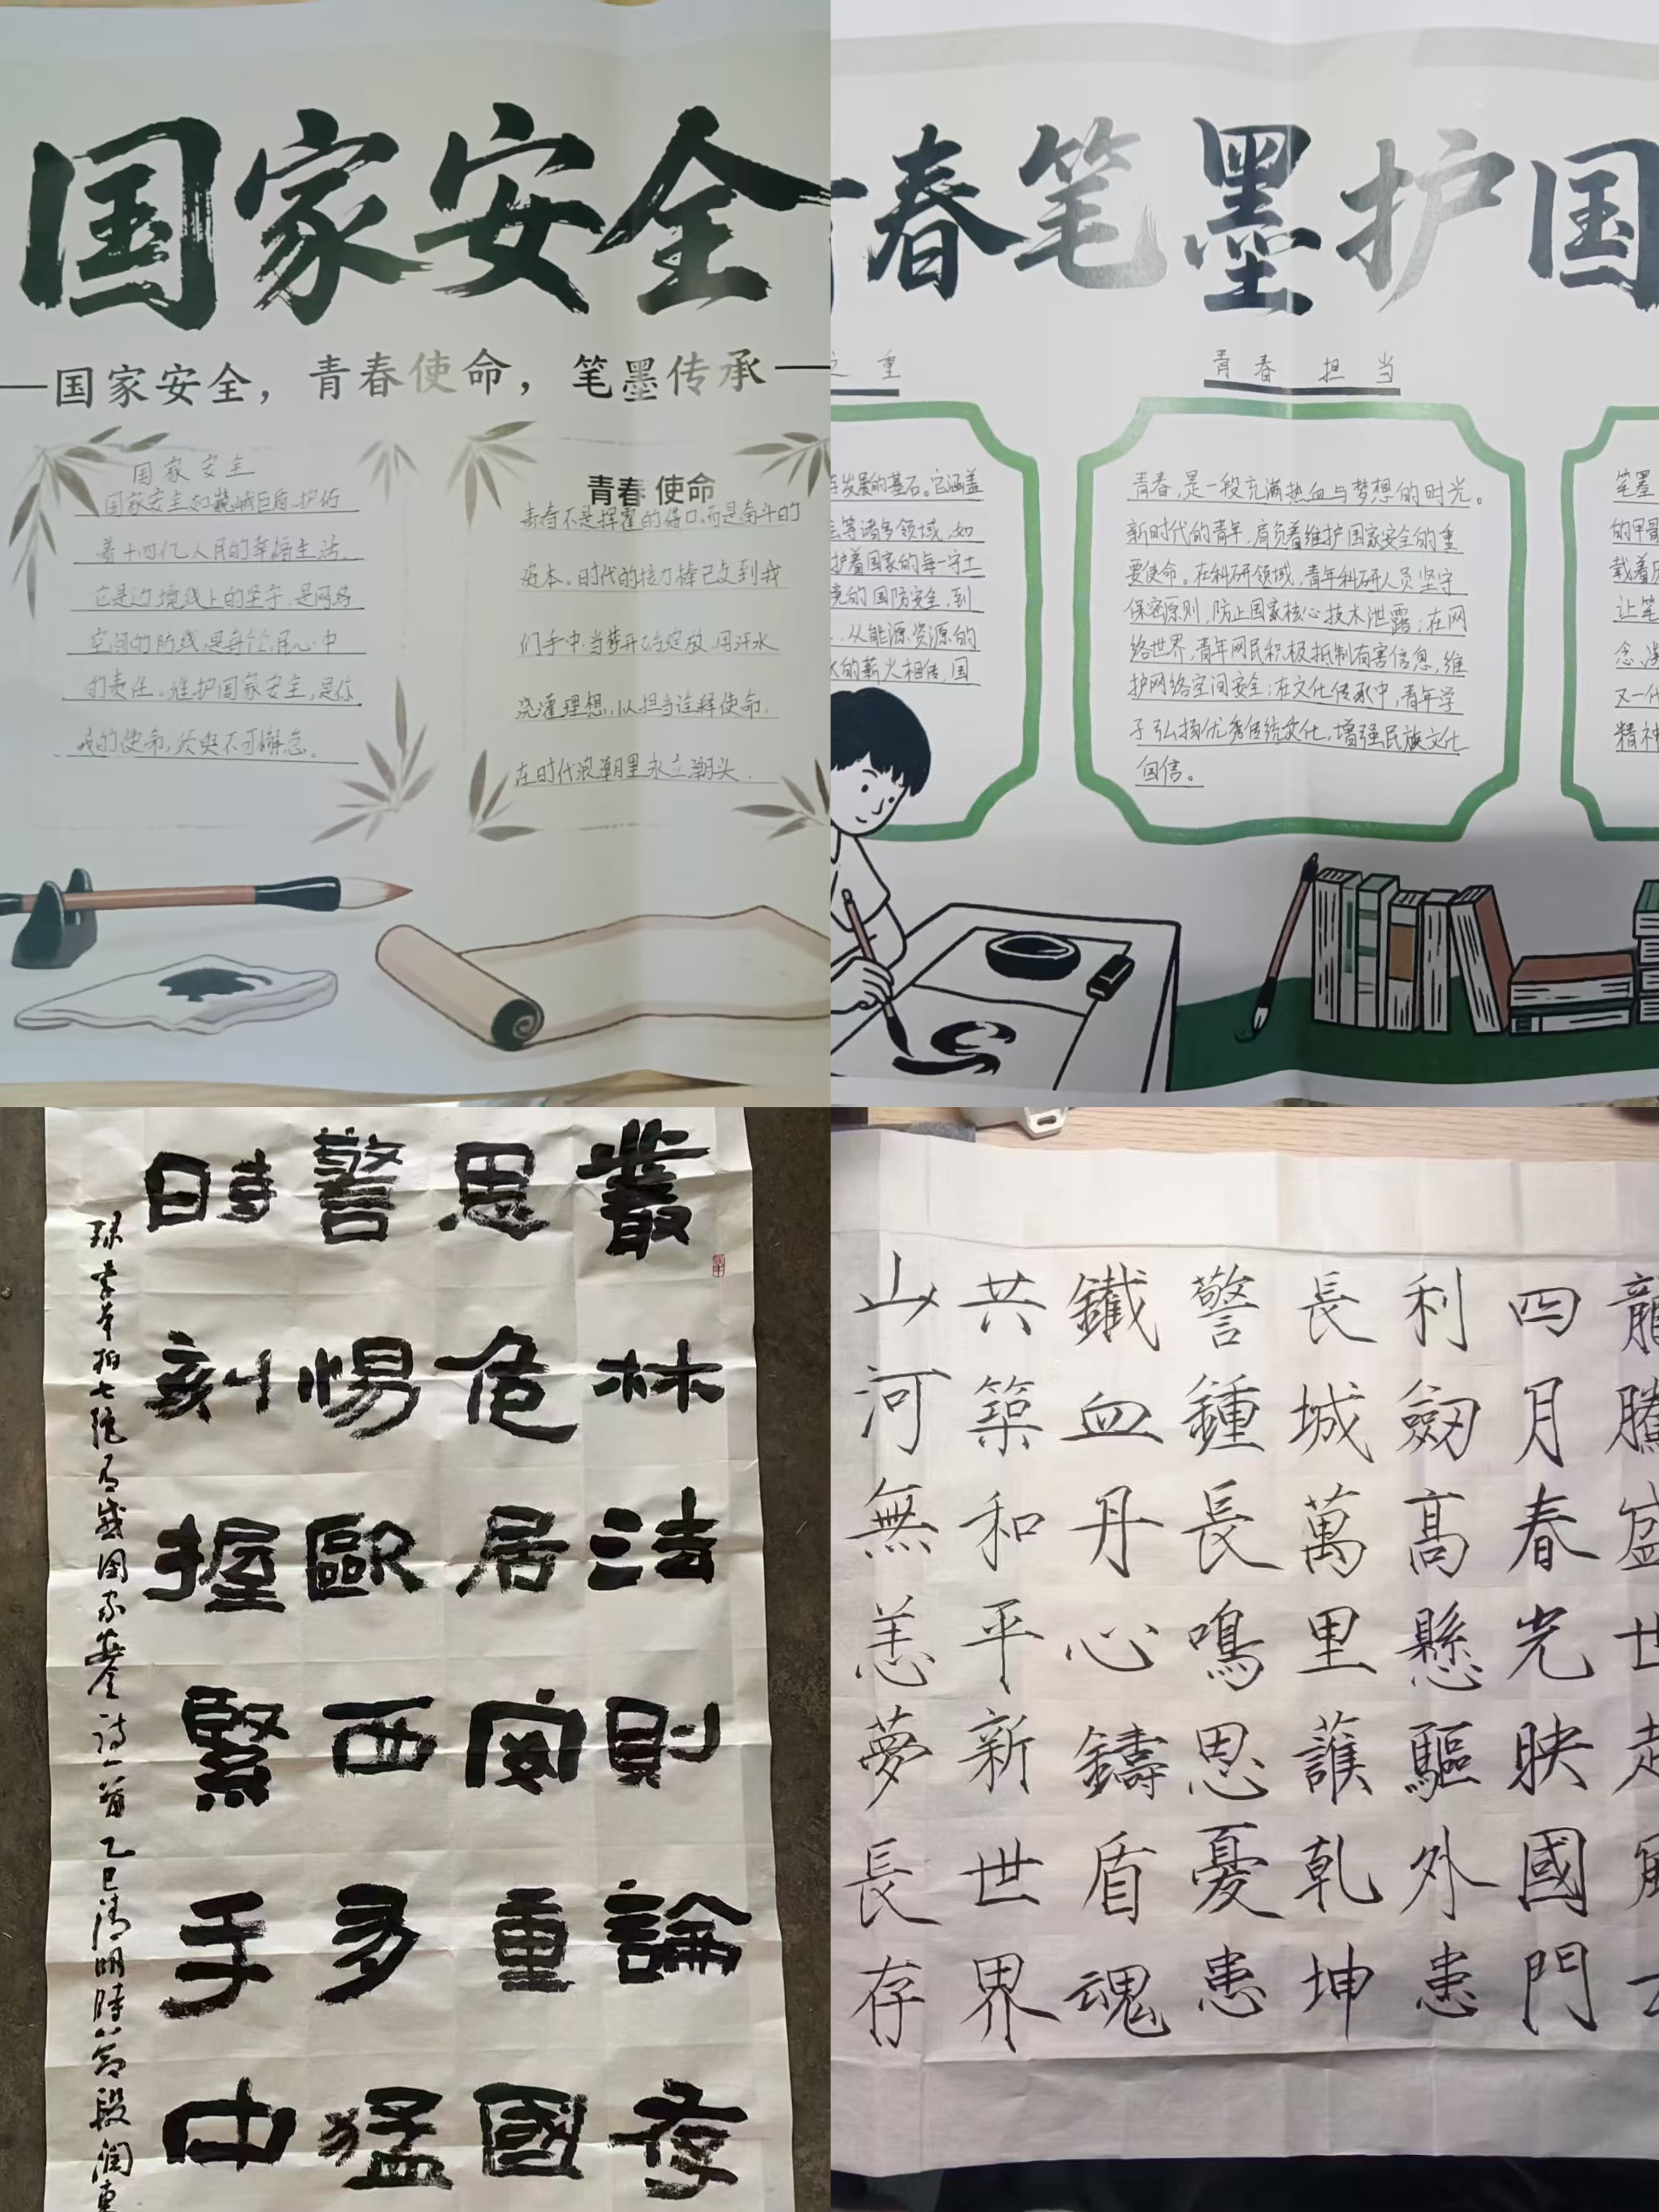 国家安全
国家安全，青春使命，笔墨传承
国家安全
国家安全如盾,护佑
着十四亿人民的幸福生活。
它是边境线上的坚守,是网络
空间的防线,是每个人心中
的责任。维护国家安全,是你
我的使命,片刻不可懈怠。
青春 使命
青春不是挥霍的借口,而是奋斗的
资本。时代的接力棒已交到我
们手中,当梦开始绽放,用汗水
浇灌理想,以担当诠释使命,
在时代浪潮里永立潮头.
春笔墨护国
之重
发展的基石。它涵盖
等诸多领域,如
护着国家的每一寸土
的国防安全,到
从能源资源的
的薪火相传,国
青春担当
青春,是一段充满热血与梦想的时光。
新时代的青年,肩负着维护国家安全的重
要使命。在科研领域,青年科研人员坚守
保密原则,防止国家核心技术泄露;在网
络世界,青年网民积极抵制有害信息,维
护网络空间安全;在文化传承中,青年学
子弘扬优秀传统文化,增强民族文化
自信。
笔墨
的甲骨
载着历
让笔
念,凝
又一代
精神
叢林法則論存
思危居安重國
警惕歐西多猛
時刻握緊手中
球李本柏七绝有感國家安全詩一首乙巳清明時節段润東
龍騰盛世起
四月春光映國門
利劍高懸驅外患
長城萬里護乾坤
警鐘長鳴思憂患
鐵血丹心鑄盾魂
共築和平新世界
山河無恙夢長存